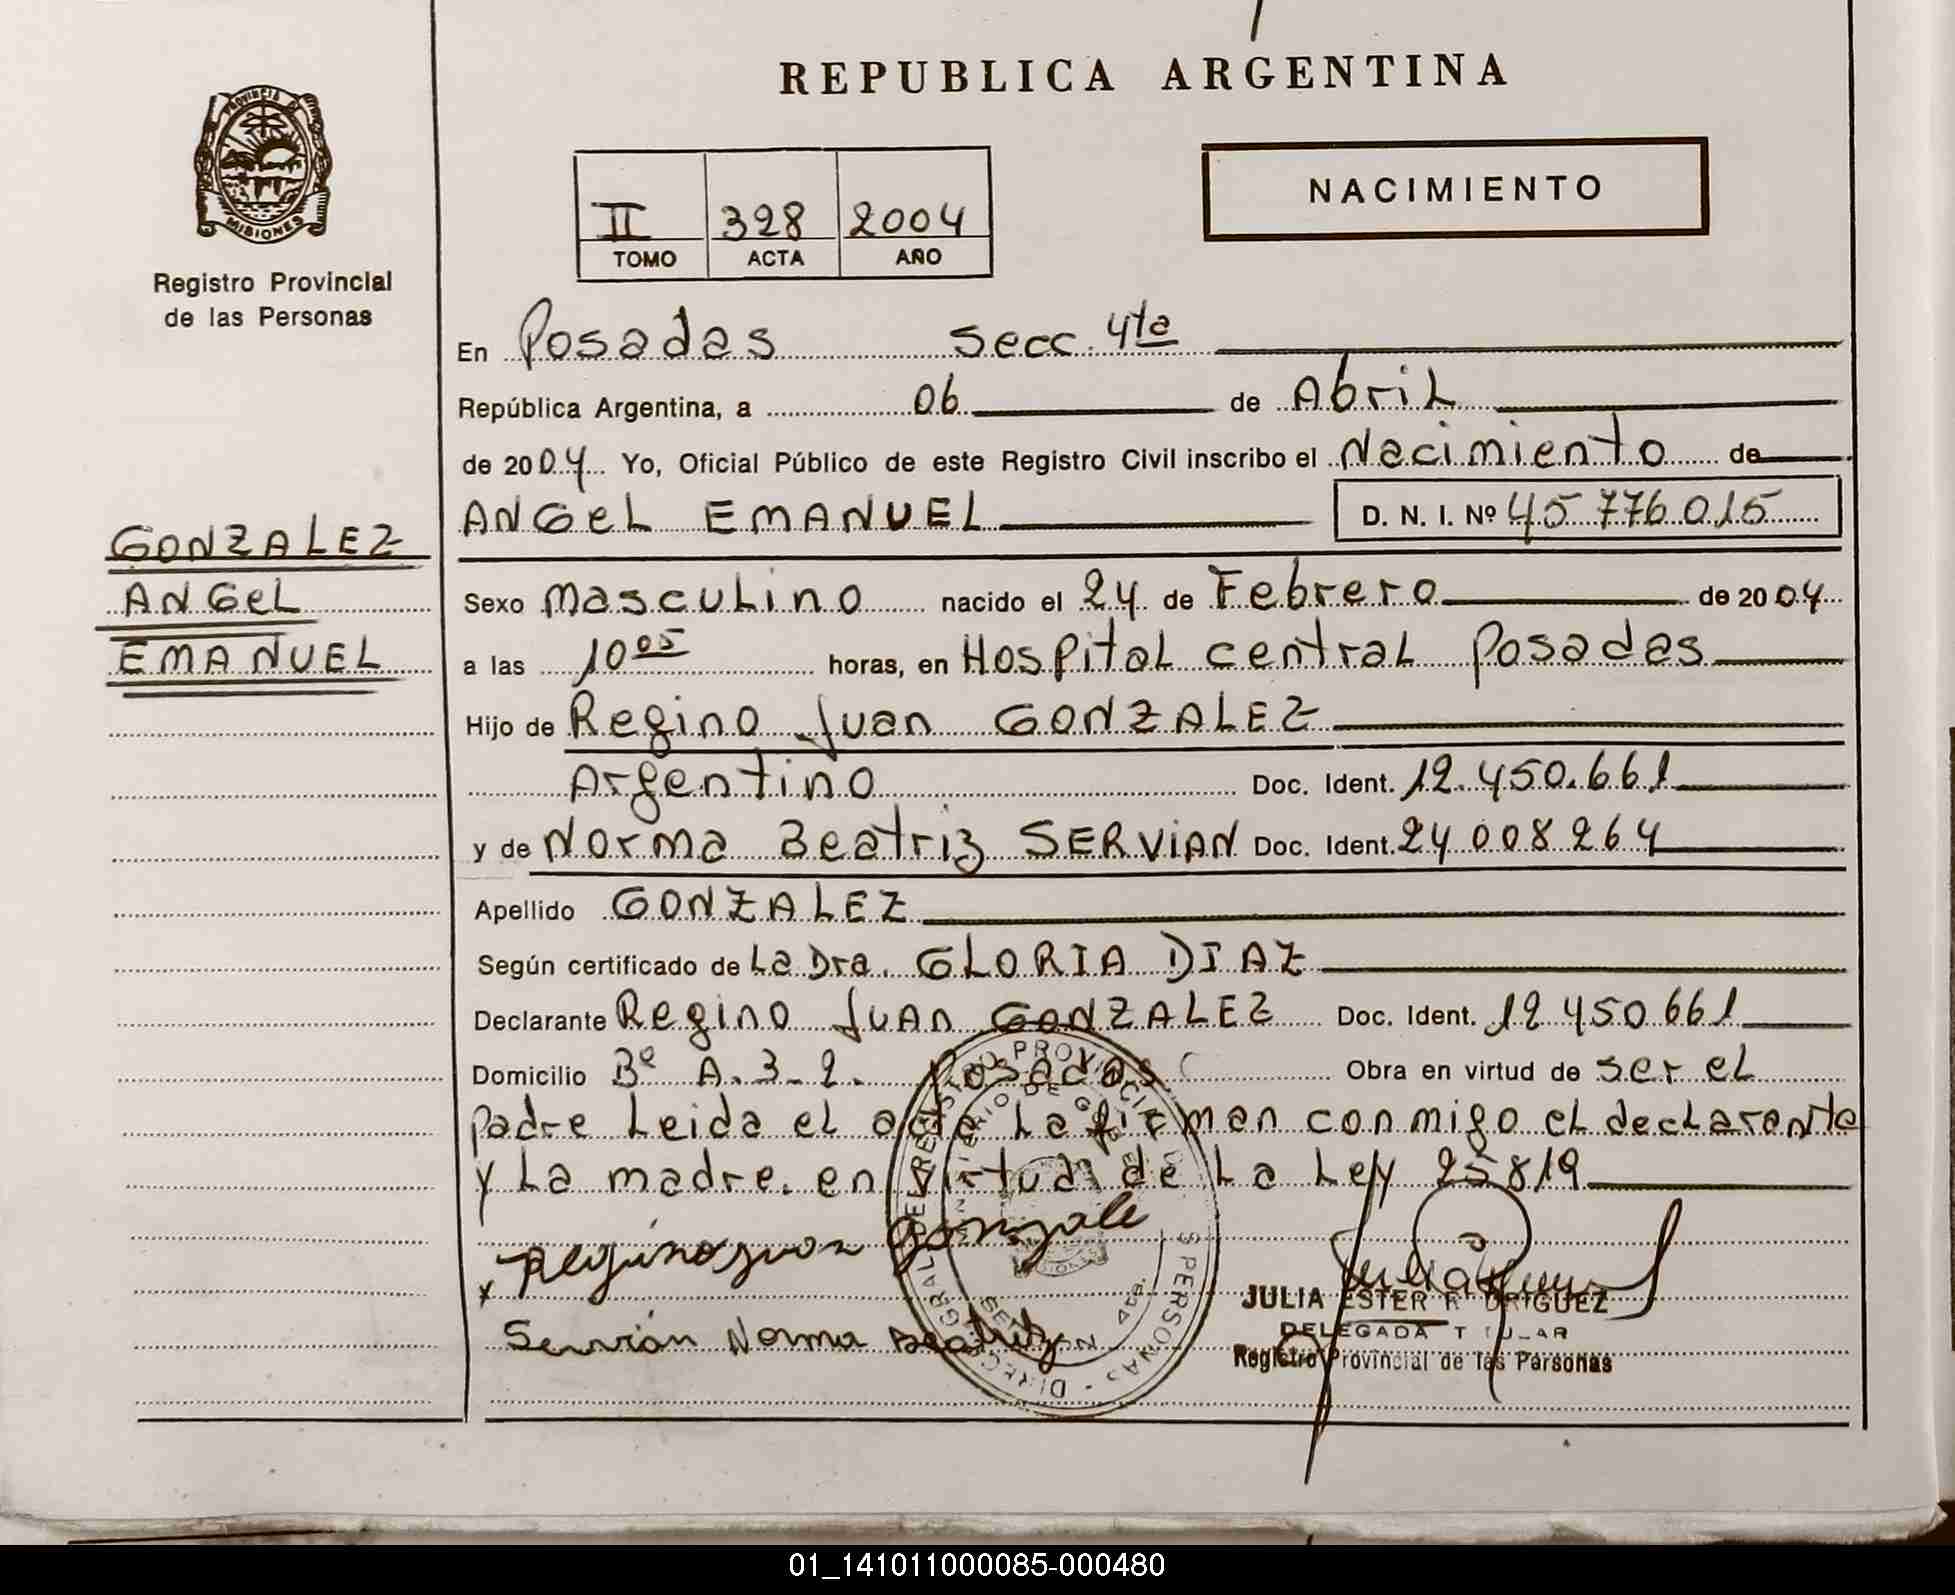 REPUBLICA ARGENTINA
PROVINCIA DE
MISIONES
Registro Provincial
de las Personas
NACIMIENTO
II 328 2004
TOMO ACTA AÑO
En Posadas secc. 4ta
República Argentina, a 06 de Abril
de 2004 Yo, Oficial Público de este Registro Civil inscribo el Nacimiento de
ANGEL EMANUEL D. N. I. Nº 45.776.015
GONZALEZ
ANGEL
EMANUEL
Sexo masculino nacido el 24 de Febrero de 2004
a las 10 05 horas, en Hospital central Posadas
Hijo de Regino Juan GONZALEZ
Argentino Doc. Ident. 12.450.661
y de Norma Beatriz SERVIAN Doc. Ident. 24 008 264
Apellido GONZALEZ
Según certificado de La Dra. GLORIA DIAZ
Declarante Regino Juan GONZALEZ Doc. Ident. 12 450 661
Domicilio Bº A. 3-2. Posadas Obra en virtud de ser el
padre Leida el acta La firman conmigo el declarante
y La madre. en virtud de La Ley 25819
Regino Juan Gonzale
x
Servián Norma Beatriz
JULIA ESTER RODRIGUEZ
DELEGADA TITULAR
Registro Provincial de las Personas
01_141011000085-000480